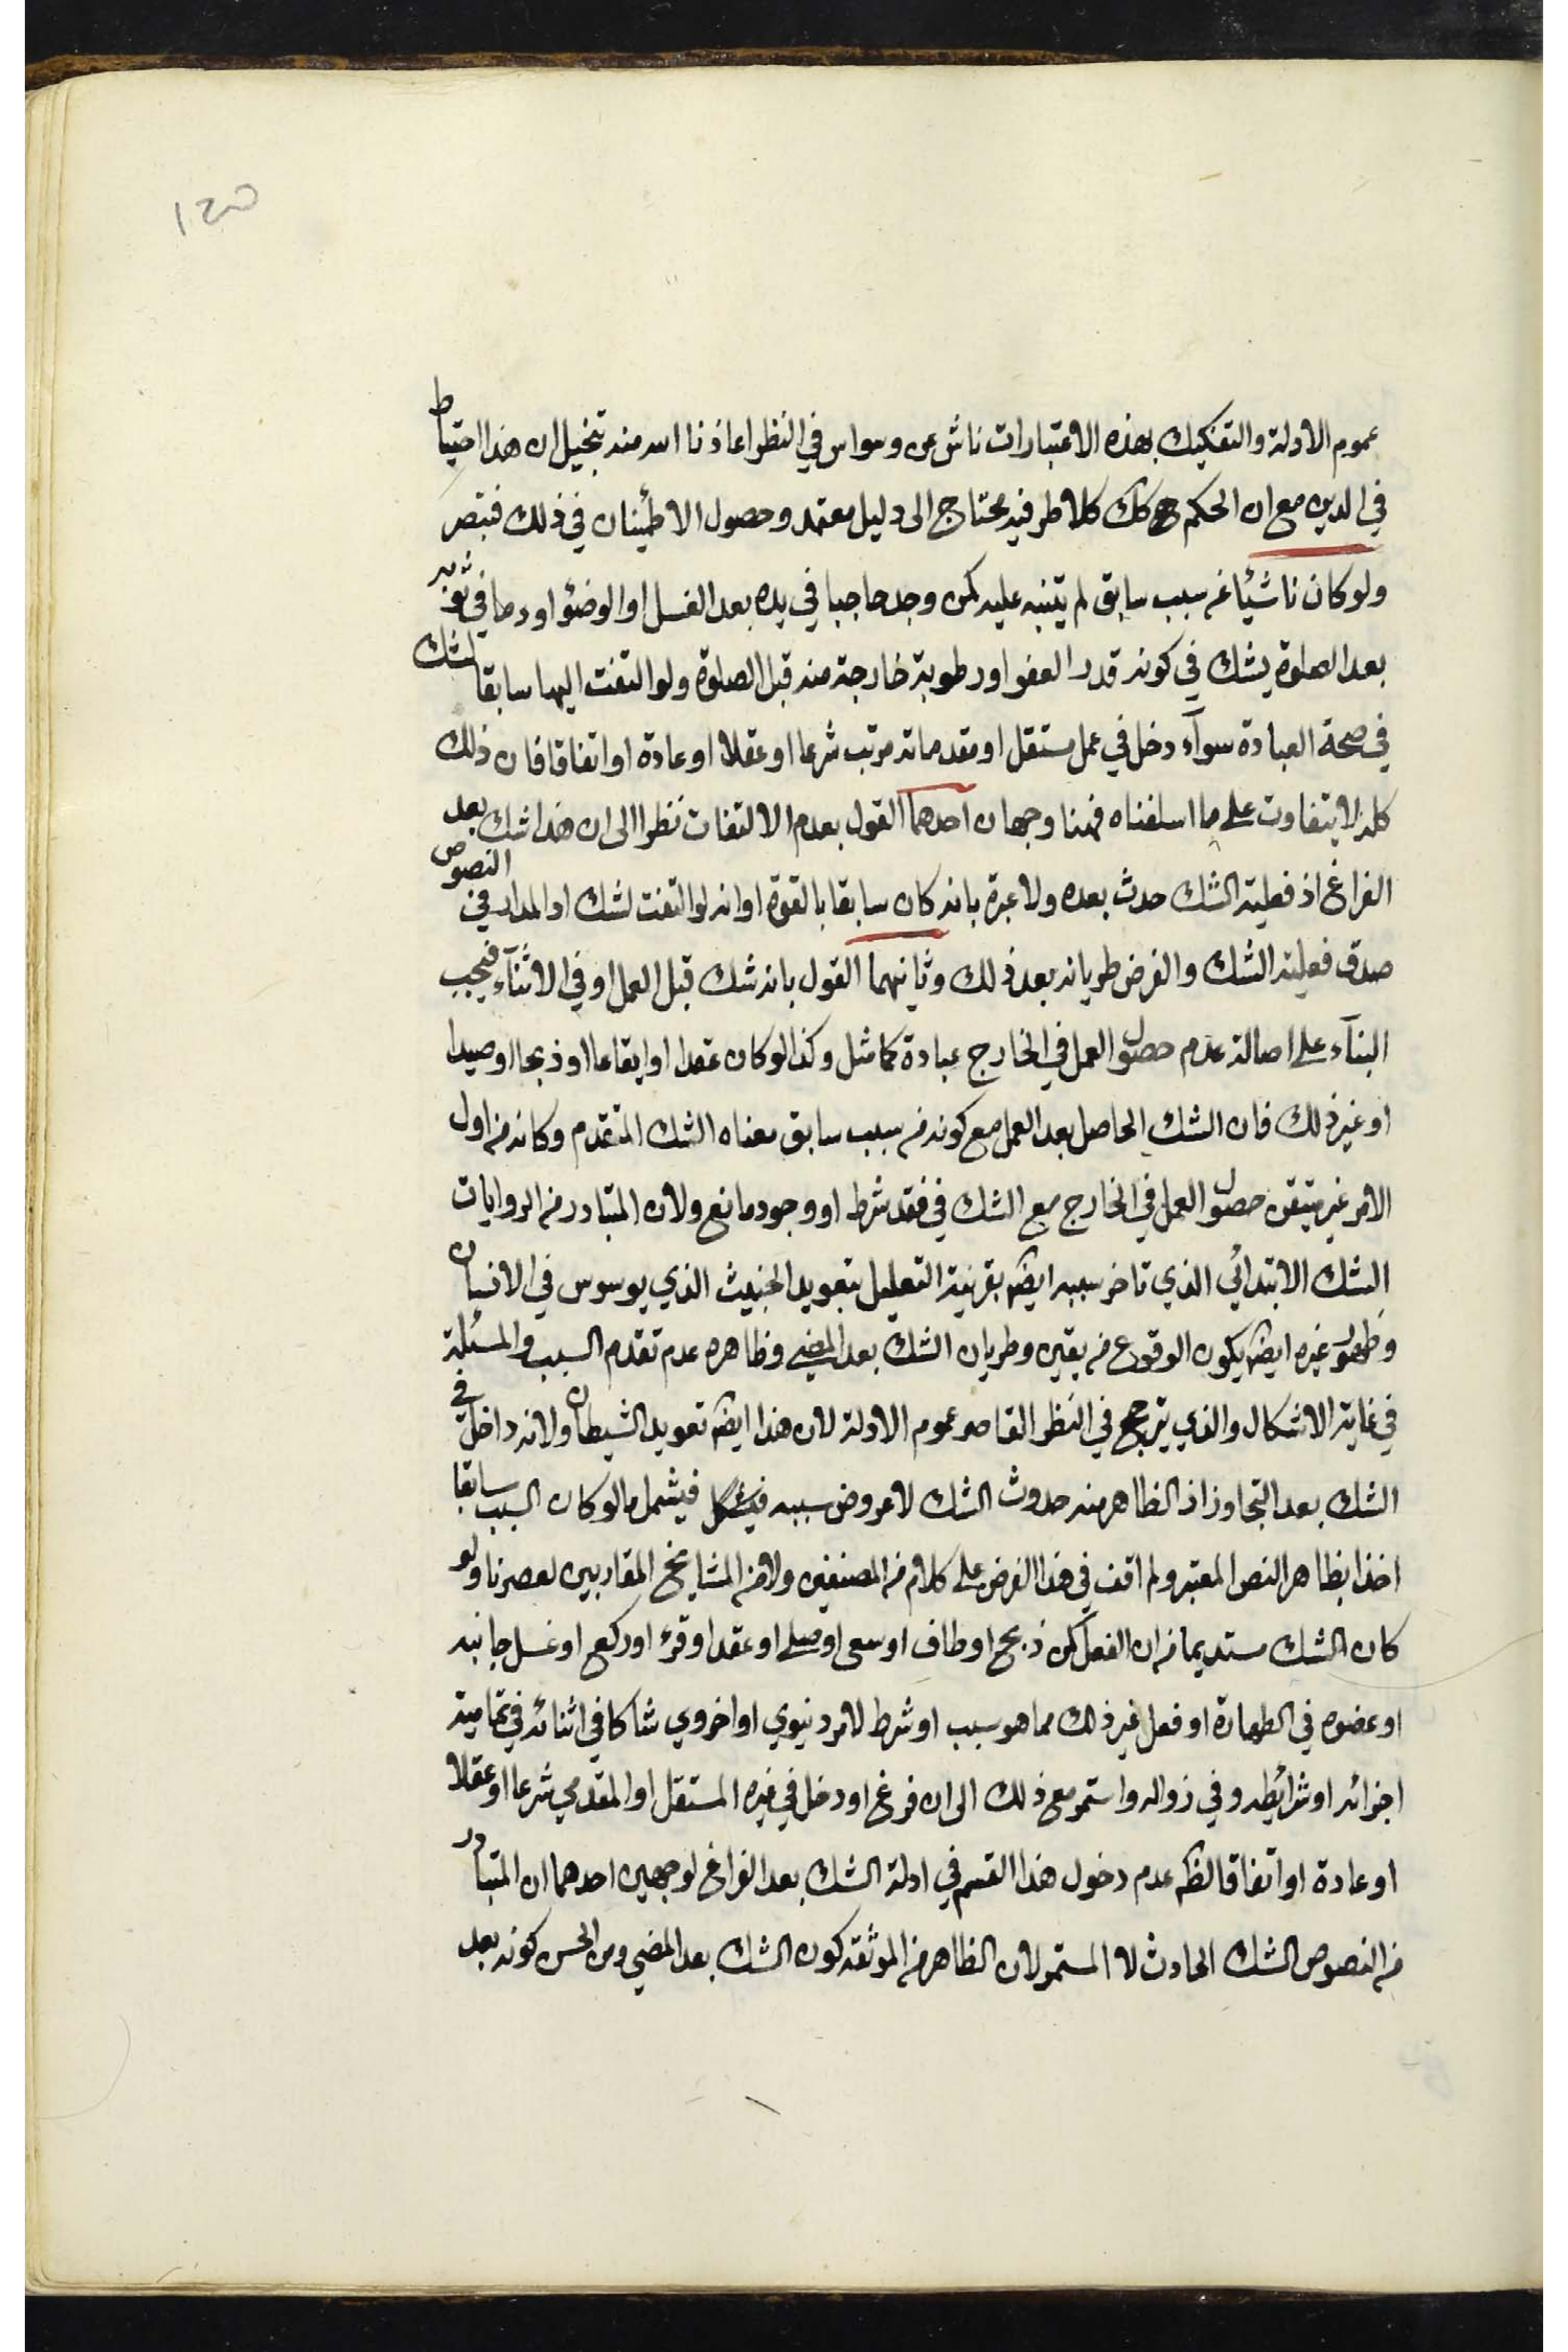 ١٢٥
عموم الادلة والتفكيك بهذه الاعتبارات ناش عن وسواس في النظر اعاذنا الله منه بتخيل ان هذا احتياط
في الدين مع ان الحكم ح كك كلا طرفيه محتاج الى دليل معتمد وحصول الاطمينان في ذلك فتبصر
ولو كان ناشيئا من سبب سابق لم يتنبه عليه كمن وجد حاجبا في يده بعد الغسل او الوضوء او دما في ثوبه
بعد الصلوة يشك في كونه قدر العفو او رطوبة خارجة منه قبل الصلوة ولو التفت اليها سابقا لشك
في صحة العبادة سوآء دخل في عمل مستقل او مقدماته مرتب شرعا او عقلا او عادة او اتفاقا فان ذلك
كله لا يتفاوت على ما اسلفناه فهنا وجهان احدهما القول بعدم الالتفات نظرا الى ان هذا شك بعد
الفراغ اذ فعلية الشك حدث بعده ولا عبرة بانه كان سابقا بالقوة او انه لو التفت لشك اذ المدار في النصوص
صدق فعلية الشك والفرض طريانه بعد ذلك وثانيهما القول بانه شك قبل العمل او في الاثنآء فيجب
البنآء على اصالة عدم حصول العمل في الخارج عبادة كما مثل وكذا لو كان عقدا او ايقاعا او ذبحا او صيدا
او غير ذلك فان الشك الحاصل بعد العمل مع كونه من سبب سابق معناه الشك المتقدم وكانه من اول
الامر غير متيقن حصول العمل في الخارج مع الشك في فقد شرط او وجود مانع ولان المتبادر من الروايات
الشك الابتدائي الذي تاخر سببه ايضا بقرينة التعليل بتعويد الخبيث الذي يوسوس في الانسان
وظهور غيره ايضا يكون الوقوع من يقين وطريان الشك بعد المضي وظاهره عدم تقدم السبب والمسئلة
في غاية الاشكال والذي يترجح في النظر القاصر عموم الادلة لان هذا ايضا تعويد الشيطان ولانه داخل في
الشك بعد التجاوز اذ الظاهر منه حدوث الشك لا عروض سببه فيشمل ما لو كان السبب سابقا
اخذا بظاهر النص المعتبر ولم اقف في هذا الفرض على كلام من المصنفين ولا من المشايخ المقاربين لعصرنا ولو
كان الشك مستديما من ان الفعل كمن ذبح او طاف او سعى او صلى او عقد او قرء او ركع او غسل جانبه
او عضوه في الطهارة او فعل غير ذلك مما هو سبب او شرط لامر دنيوي او اخروي شاكا في اثنائه في تمامية
اجزائه او شرائطه وفي زواله واستمر مع ذلك الى ان فرغ او دخل في غيره المستقل او المقدمي شرعا او عقلا
او عادة او اتفاقا الظ عدم دخول هذا القسم في ادلة الشك بعد الفراغ لوجهين احدهما ان المتبادر
من النصوص الشك الحادث لا المستمر لان الظاهر من الموثقة كون الشك بعد المضي ومن الحسن كونه بعد